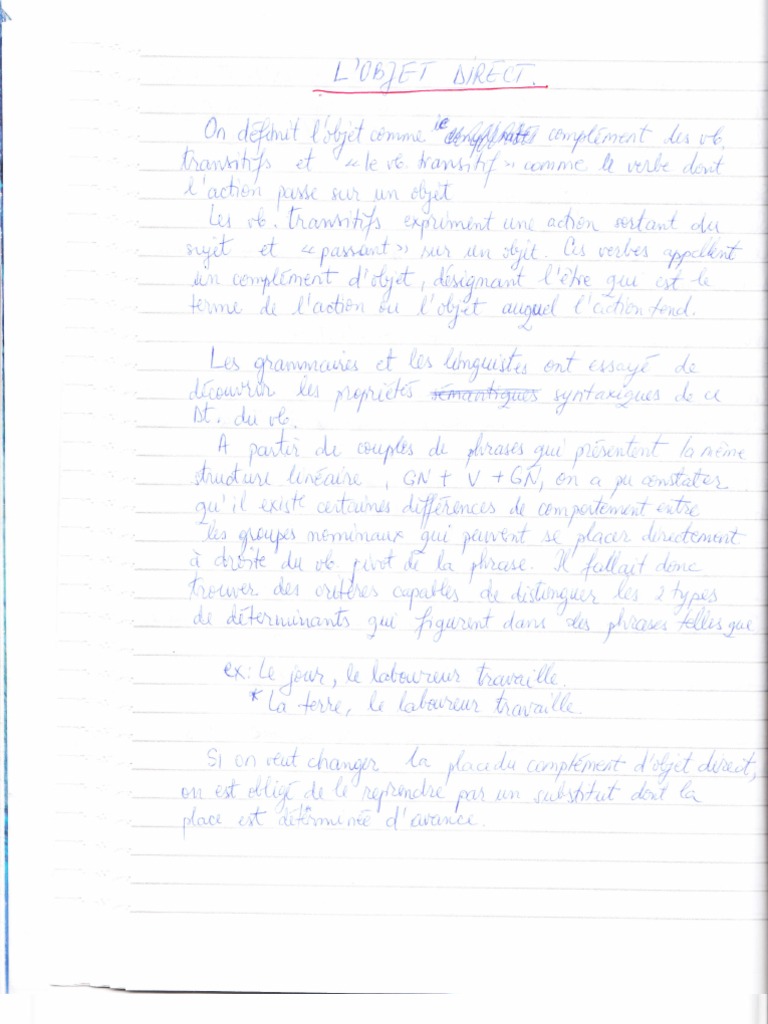 L'OBJET DIRECT.
On définit l'objet comme le complément des vb.
transitifs et « le vb. transitif » comme le verbe dont
l'action passe sur un objet
Les vb. transitifs expriment une action sortant du
sujet et « passant » sur un objet. Ces verbes appellent
un complément d'objet, désignant l'être qui est le
terme de l'action ou l'objet auquel l'action tend.
Les grammaires et les linguistes ont essayé de
découvrir les propriétés sémantiques syntaxiques de ce
Dt. du vb.
A partir de couples de phrases qui présentent la même
structure linéaire, GN + V + GN, on a pu constater
qu'il existe certaines différences de comportement entre
les groupes nominaux qui peuvent se placer directement
à droite du vb. pivot de la phrase. Il fallait donc
trouver des critères capables de distinguer les 2 types
de déterminants qui figurent dans des phrases telles que
ex: Le jour, le laboureur travaille.
* La terre, le laboureur travaille.
Si on veut changer la place du complément d'objet direct,
on est obligé de le reprendre par un substitut dont la
place est déterminée d'avance.